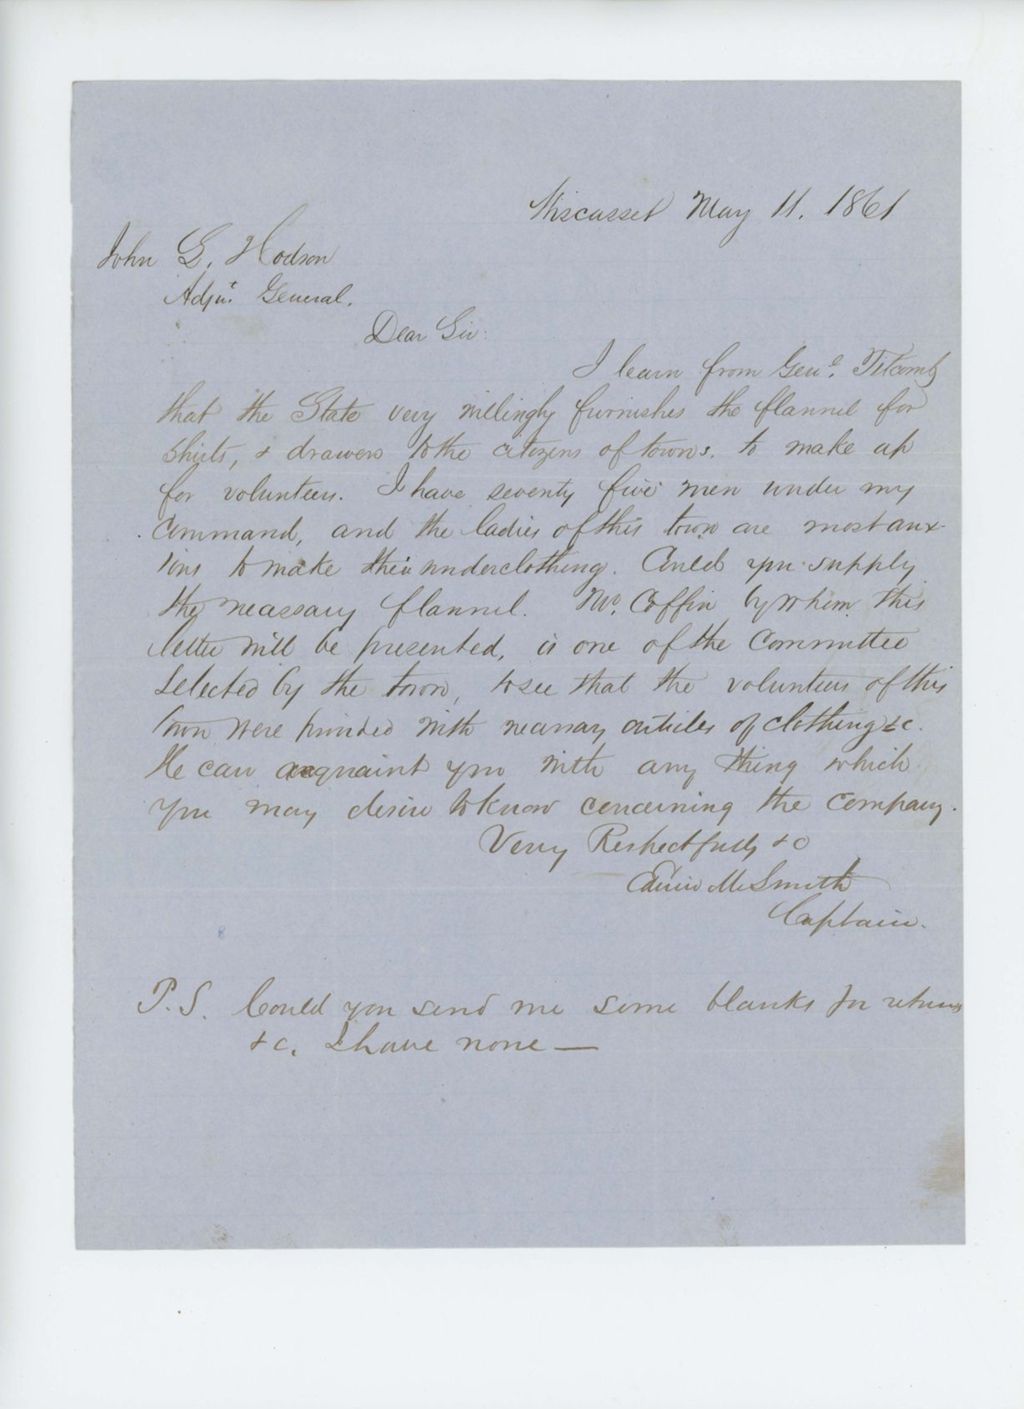 Wiscasset May 11. 1861
John L. Hodson
Adjut. General.
Dear Sir:
I learn from Genl. Titcomb
that the State very willingly furnishes the flannel for
shirts, & drawers to the citizens of towns. to make up
for volunteers. I have seventy five men under my
command, and the ladies of this town are most anx-
ious to make their underclothing. Could you supply
the necessary flannel. Mr. Coffin by whom this
letter will be presented, is one of the Committee
selected by the town, to see that the volunteers of this
town were provided with necessary articles of clothing &c.
He can acquaint you with any thing which
you may desire to know concerning the company.
Very Respectfully &c
Edwin M. Smith
Captain.
P.S. Could you send me some blanks for returns
&c. I have none —